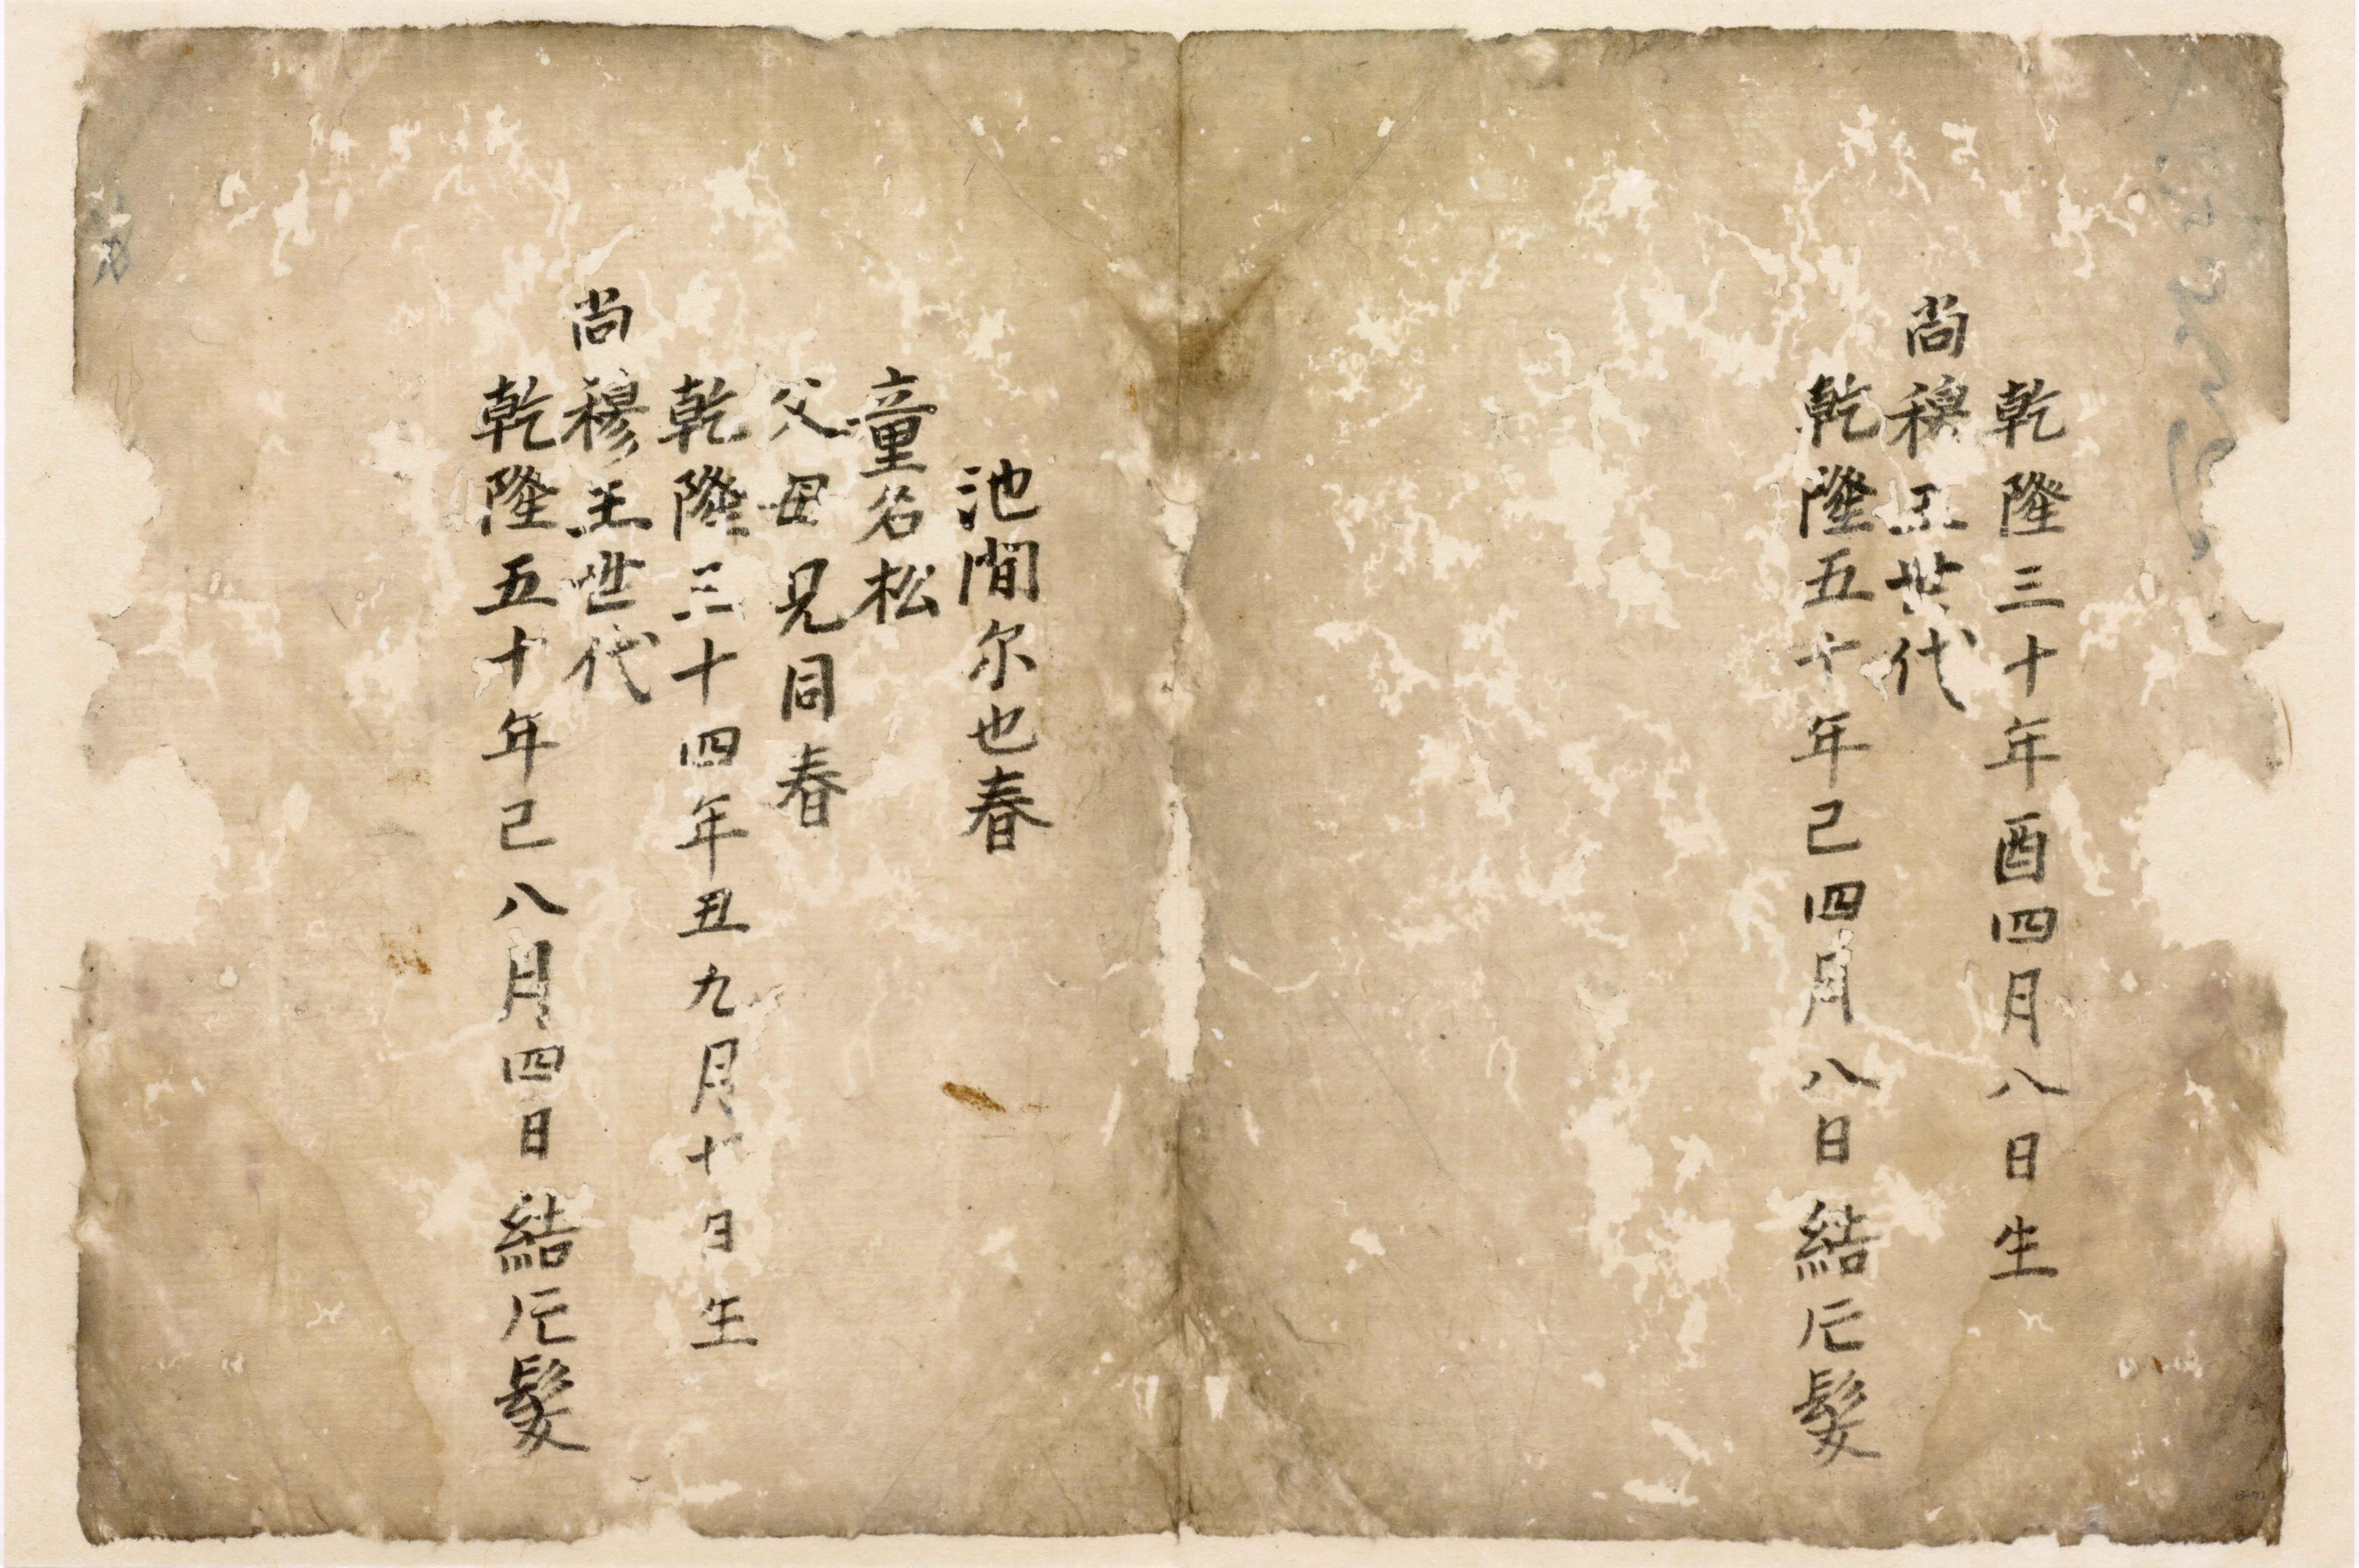 乾隆三十年酉四月八日生
尚穆王世代
乾隆五十年己四月八日結片髪
池間尓也春
童名松
父母兄同春
乾隆三十四年丑九月十日生
尚穆王世代
乾隆五十年己八月四日結片髪